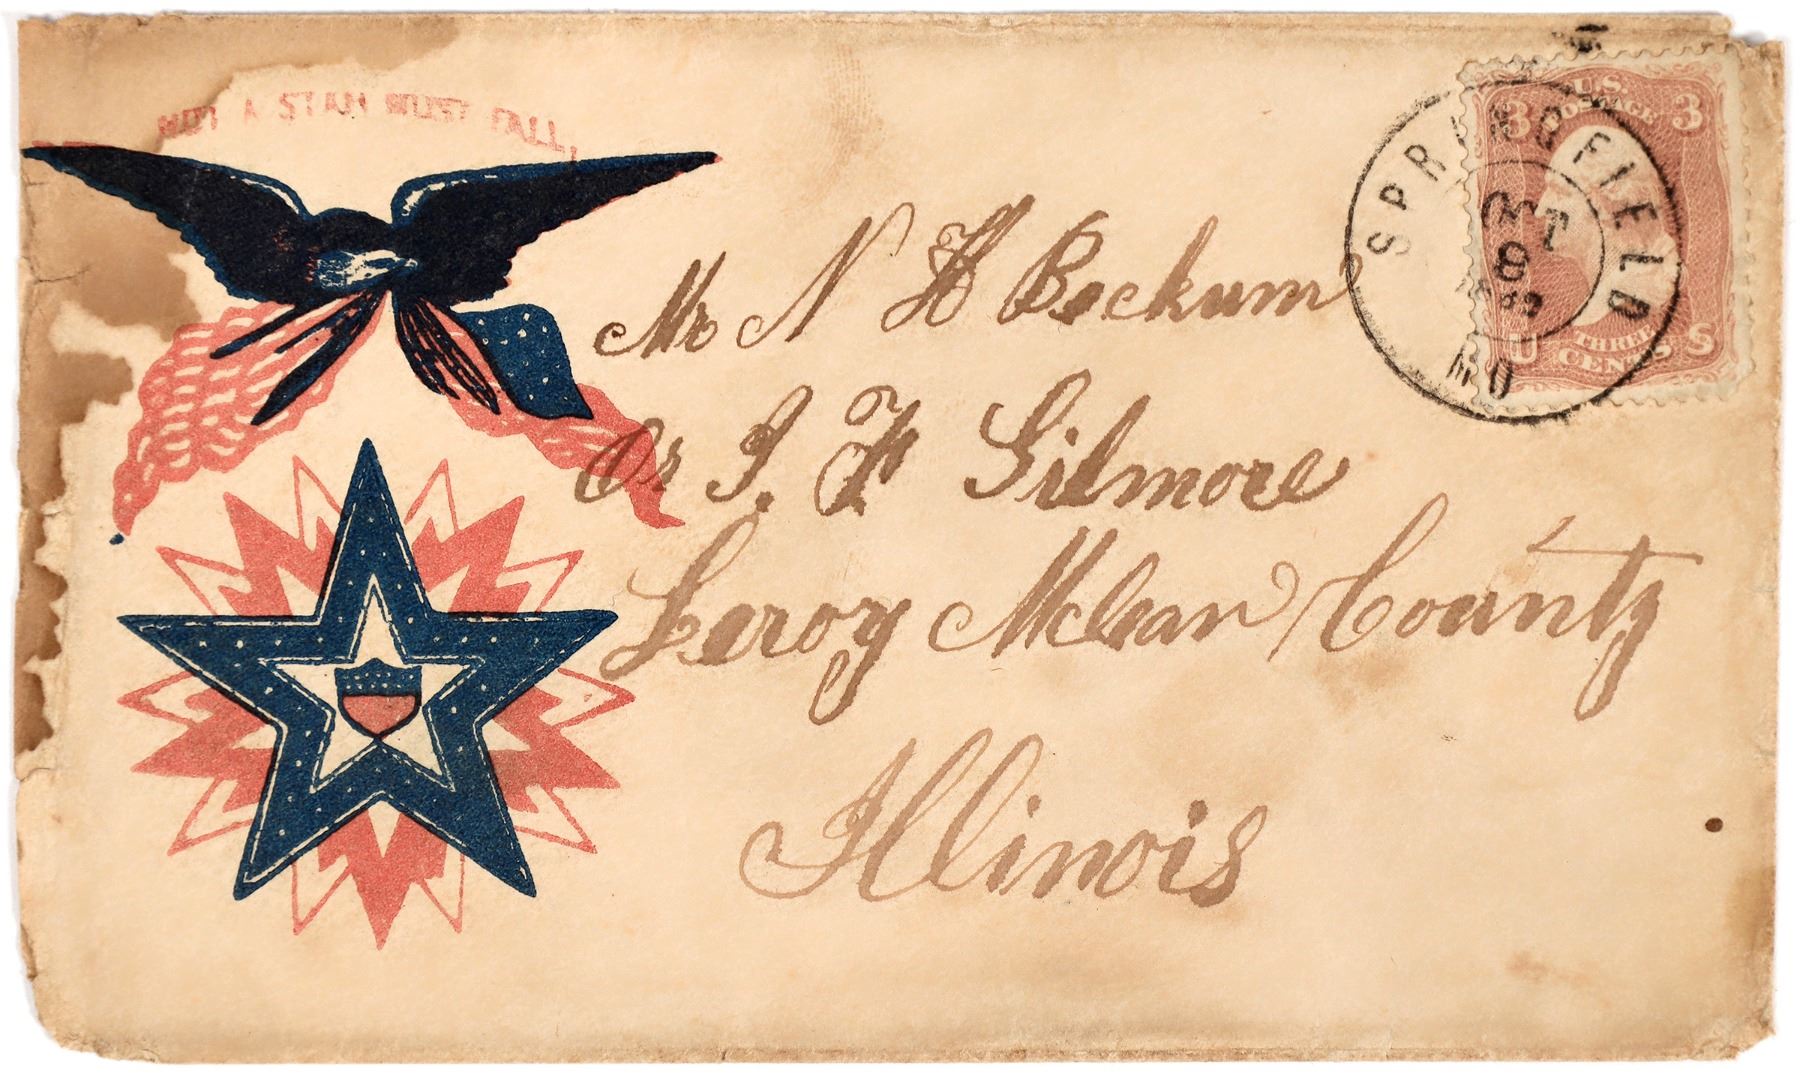 NOT A STAR MUST FALL,
U.S.
POSTAGE
3 3
SPRINGFIELD
OCT
8
MO
U S
THREE
CENTS
Mr N H Beckum
Or J. F Gilmore
Leroy Mclean County
Illinois